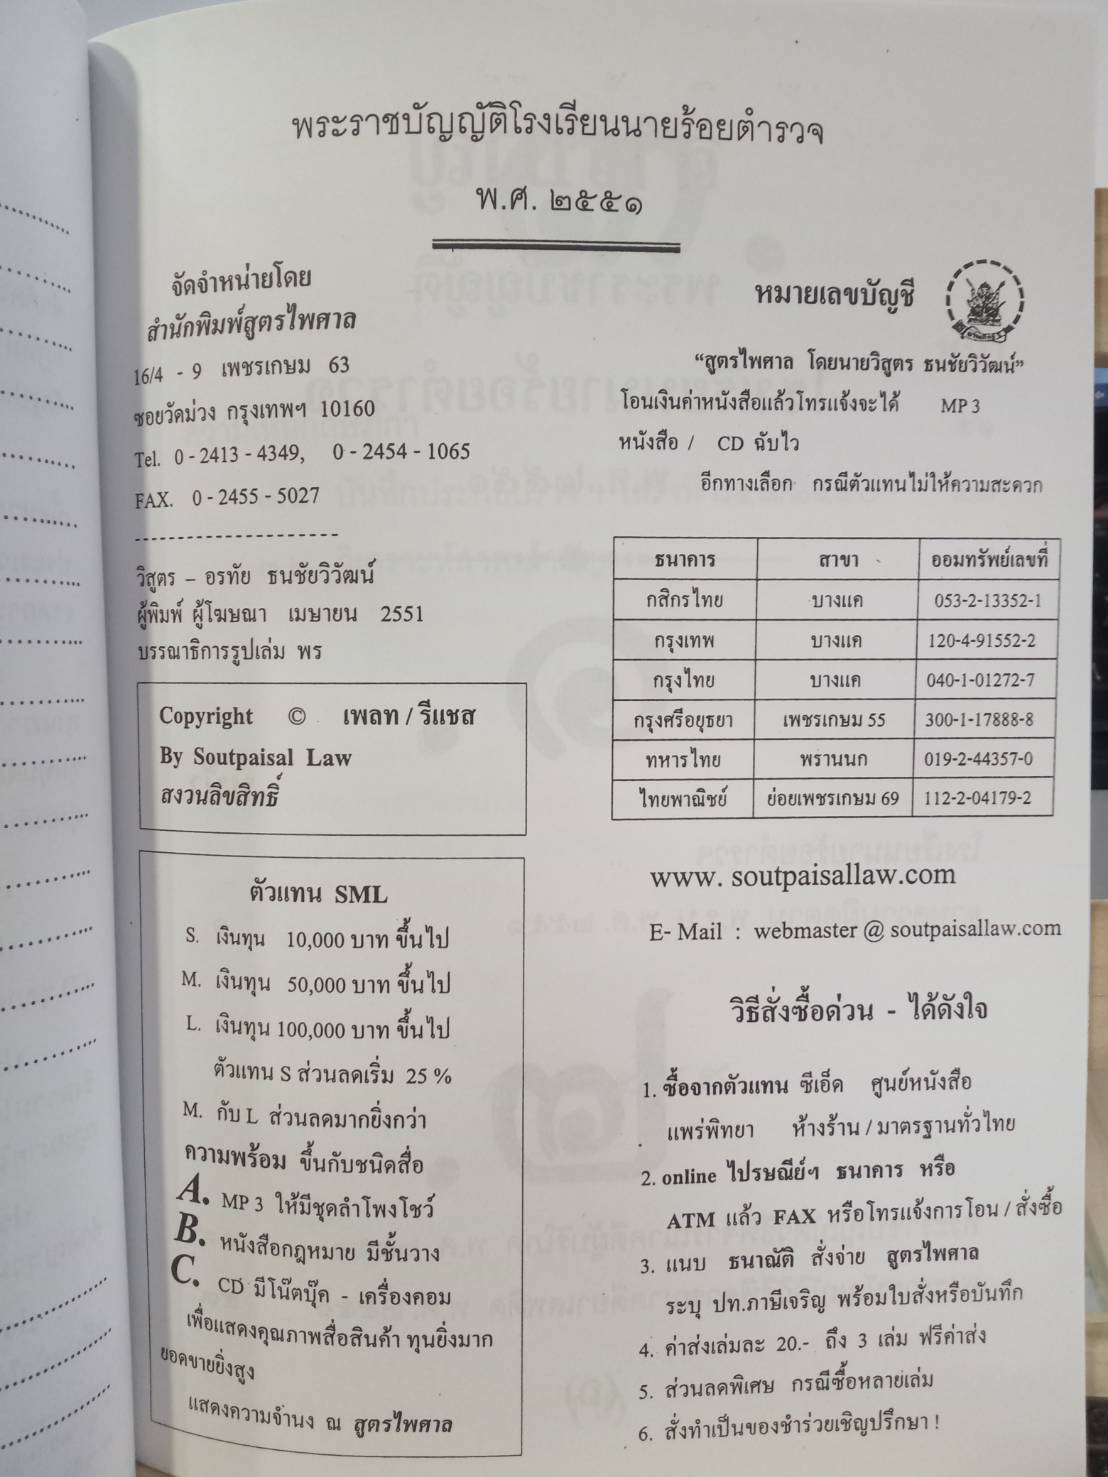 พระราชบัญญัติโรงเรียนนายร้อยตำรวจ
พ.ศ. ๒๕๕๑
จัดจำหน่ายโดย
สำนักพิมพ์สูตรไพศาล
16/4 - 9 เพชรเกษม 63
ซอยวัดม่วง กรุงเทพฯ 10160
Tel. 0 - 2413 - 4349, 0 - 2454 - 1065
FAX. 0 - 2455 - 5027
วิสูตร – อรทัย ธนชัยวิวัฒน์
ผู้พิมพ์ ผู้โฆษณา เมษายน 2551
บรรณาธิการรูปเล่ม พร
Copyright © เพลท / รีแชส
By Soutpaisal Law
สงวนลิขสิทธิ์
ตัวแทน SML
S. เงินทุน 10,000 บาท ขึ้นไป
M. เงินทุน 50,000 บาท ขึ้นไป
L. เงินทุน 100,000 บาท ขึ้นไป
ตัวแทน S ส่วนลดเริ่ม 25 %
M. กับ L ส่วนลดมากยิ่งกว่า
ความพร้อม ขึ้นกับชนิดสื่อ
A. MP 3 ให้มีชุดลำโพงโชว์
B. หนังสือกฎหมาย มีชั้นวาง
C. CD มีโน๊ตบุ๊ค - เครื่องคอม
เพื่อแสดงคุณภาพสื่อสินค้า ทุนยิ่งมาก
ยอดขายยิ่งสูง
แสดงความจำนง ณ สูตรไพศาล
หมายเลขบัญชี
“สูตรไพศาล โดยนายวิสูตร ธนชัยวิวัฒน์”
โอนเงินค่าหนังสือแล้วโทรแจ้งจะได้ MP 3
หนังสือ / CD ฉับไว
อีกทางเลือก กรณีตัวแทนไม่ให้ความสะดวก
ธนาคาร สาขา ออมทรัพย์เลขที่
กสิกรไทย บางแค 053-2-13352-1
กรุงเทพ บางแค 120-4-91552-2
กรุงไทย บางแค 040-1-01272-7
กรุงศรีอยุธยา เพชรเกษม 55 300-1-17888-8
ทหารไทย พรานนก 019-2-44357-0
ไทยพาณิชย์ ย่อยเพชรเกษม 69 112-2-04179-2
www. soutpaisallaw.com
E- Mail : webmaster @ soutpaisallaw.com
วิธีสั่งซื้อด่วน - ได้ดังใจ
1. ซื้อจากตัวแทน ซีเอ็ด ศูนย์หนังสือ
แพร่พิทยา ห้างร้าน / มาตรฐานทั่วไทย
2. online ไปรษณีย์ฯ ธนาคาร หรือ
ATM แล้ว FAX หรือโทรแจ้งการโอน / สั่งซื้อ
3. แนบ ธนาณัติ สั่งจ่าย สูตรไพศาล
ระบุ ปท.ภาษีเจริญ พร้อมใบสั่งหรือบันทึก
4. ค่าส่งเล่มละ 20.- ถึง 3 เล่ม ฟรีค่าส่ง
5. ส่วนลดพิเศษ กรณีซื้อหลายเล่ม
6. สั่งทำเป็นของชำร่วยเชิญปรึกษา !